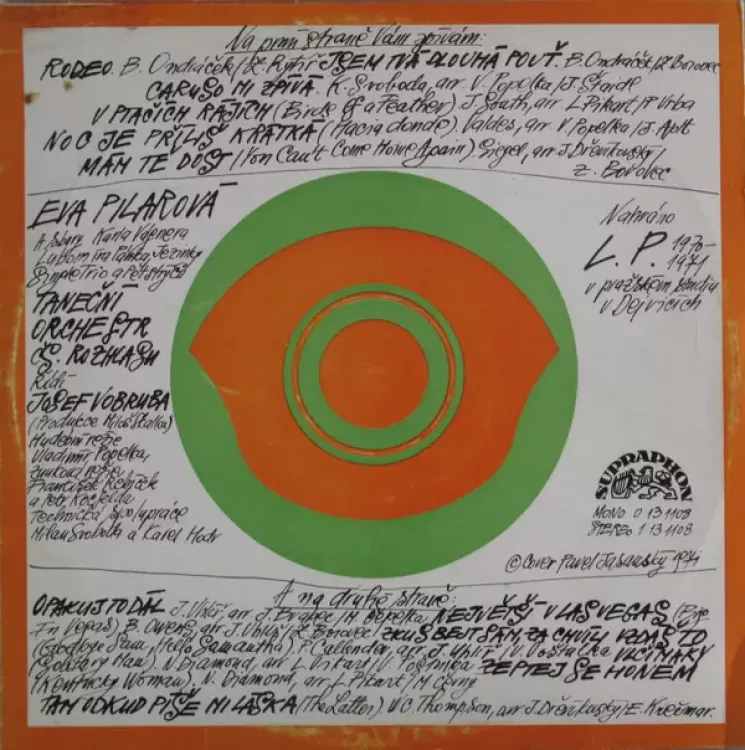 Na první straně Vám zpívám:
RODEO. B. Ondráček/Zd. Rytíř JSEM TVÁ DLOUHÁ POUŤ. B. Ondráček/Z. Borovec
CARUSO MI ZPÍVÁ. K. Svoboda, arr. V. Popelka/J. Štaidl
V PTAČÍCH RÁJÍCH (Birds of a Feather) J. South, arr. L. Pikart/P. Vrba
NOC JE PŘÍLIŠ KRÁTKÁ (Hacia donde). Valdes, arr. V. Popelka/J. Aplt
MÁM TĚ DOST (You Can't Come Home Again) Siegel, arr. J. Dřenkovský/
Z. Borovec
EVA PILAROVÁ
A sbory Karla Vágnera
Lubomíra Pánka, Jezinky
Simple Trio a
TANEČNÍ
ORCHESTR
ČS. ROZHLASU
Řídí
JOSEF VOBRUBA
(Produkce Miloš Skalka)
Hudební režie
Vladimír Popelka,
Zvuková režie
František Řebíček
a Petr Kocfelda
Technická spolupráce
Milan Svoboda a Karel Hodr
Nahráno
L.P. 1970-
1971
v pražském studiu
v Dejvicích
SUPRAPHON
MONO 0 13 1108
STEREO 1 13 1108
© Cover Pavel Jasanský 1971
A na druhé straně:
OPAKUJ TO DÁL J. Uhlíř arr. J. Brabec/M. Černý NEJVĚTŠÍ V LAS VEGAS (Big
In Vegas) B. Owens, arr. J. Uhlíř/Z. Borovec ZKUS BEJT SÁM, ZA CHVÍLI VZDÁŠ TO
(Goodbye Sam, Hello Samantha). P. Callender, arr. J. Uhlíř/V. Poštulka VLČÍ MÁKY
(Solitary Man). N. Diamond, arr. L. Pikart/V. Poštulka ZEPTEJ SE HONEM
(Kentucky Woman). N. Diamond, arr. L. Pikart/M. Černý
TAM ODKUD PÍŠE MI LÁSKA (The Letter) W. C. Thompson, arr. J. Dřenkovský/E. Krečmar.